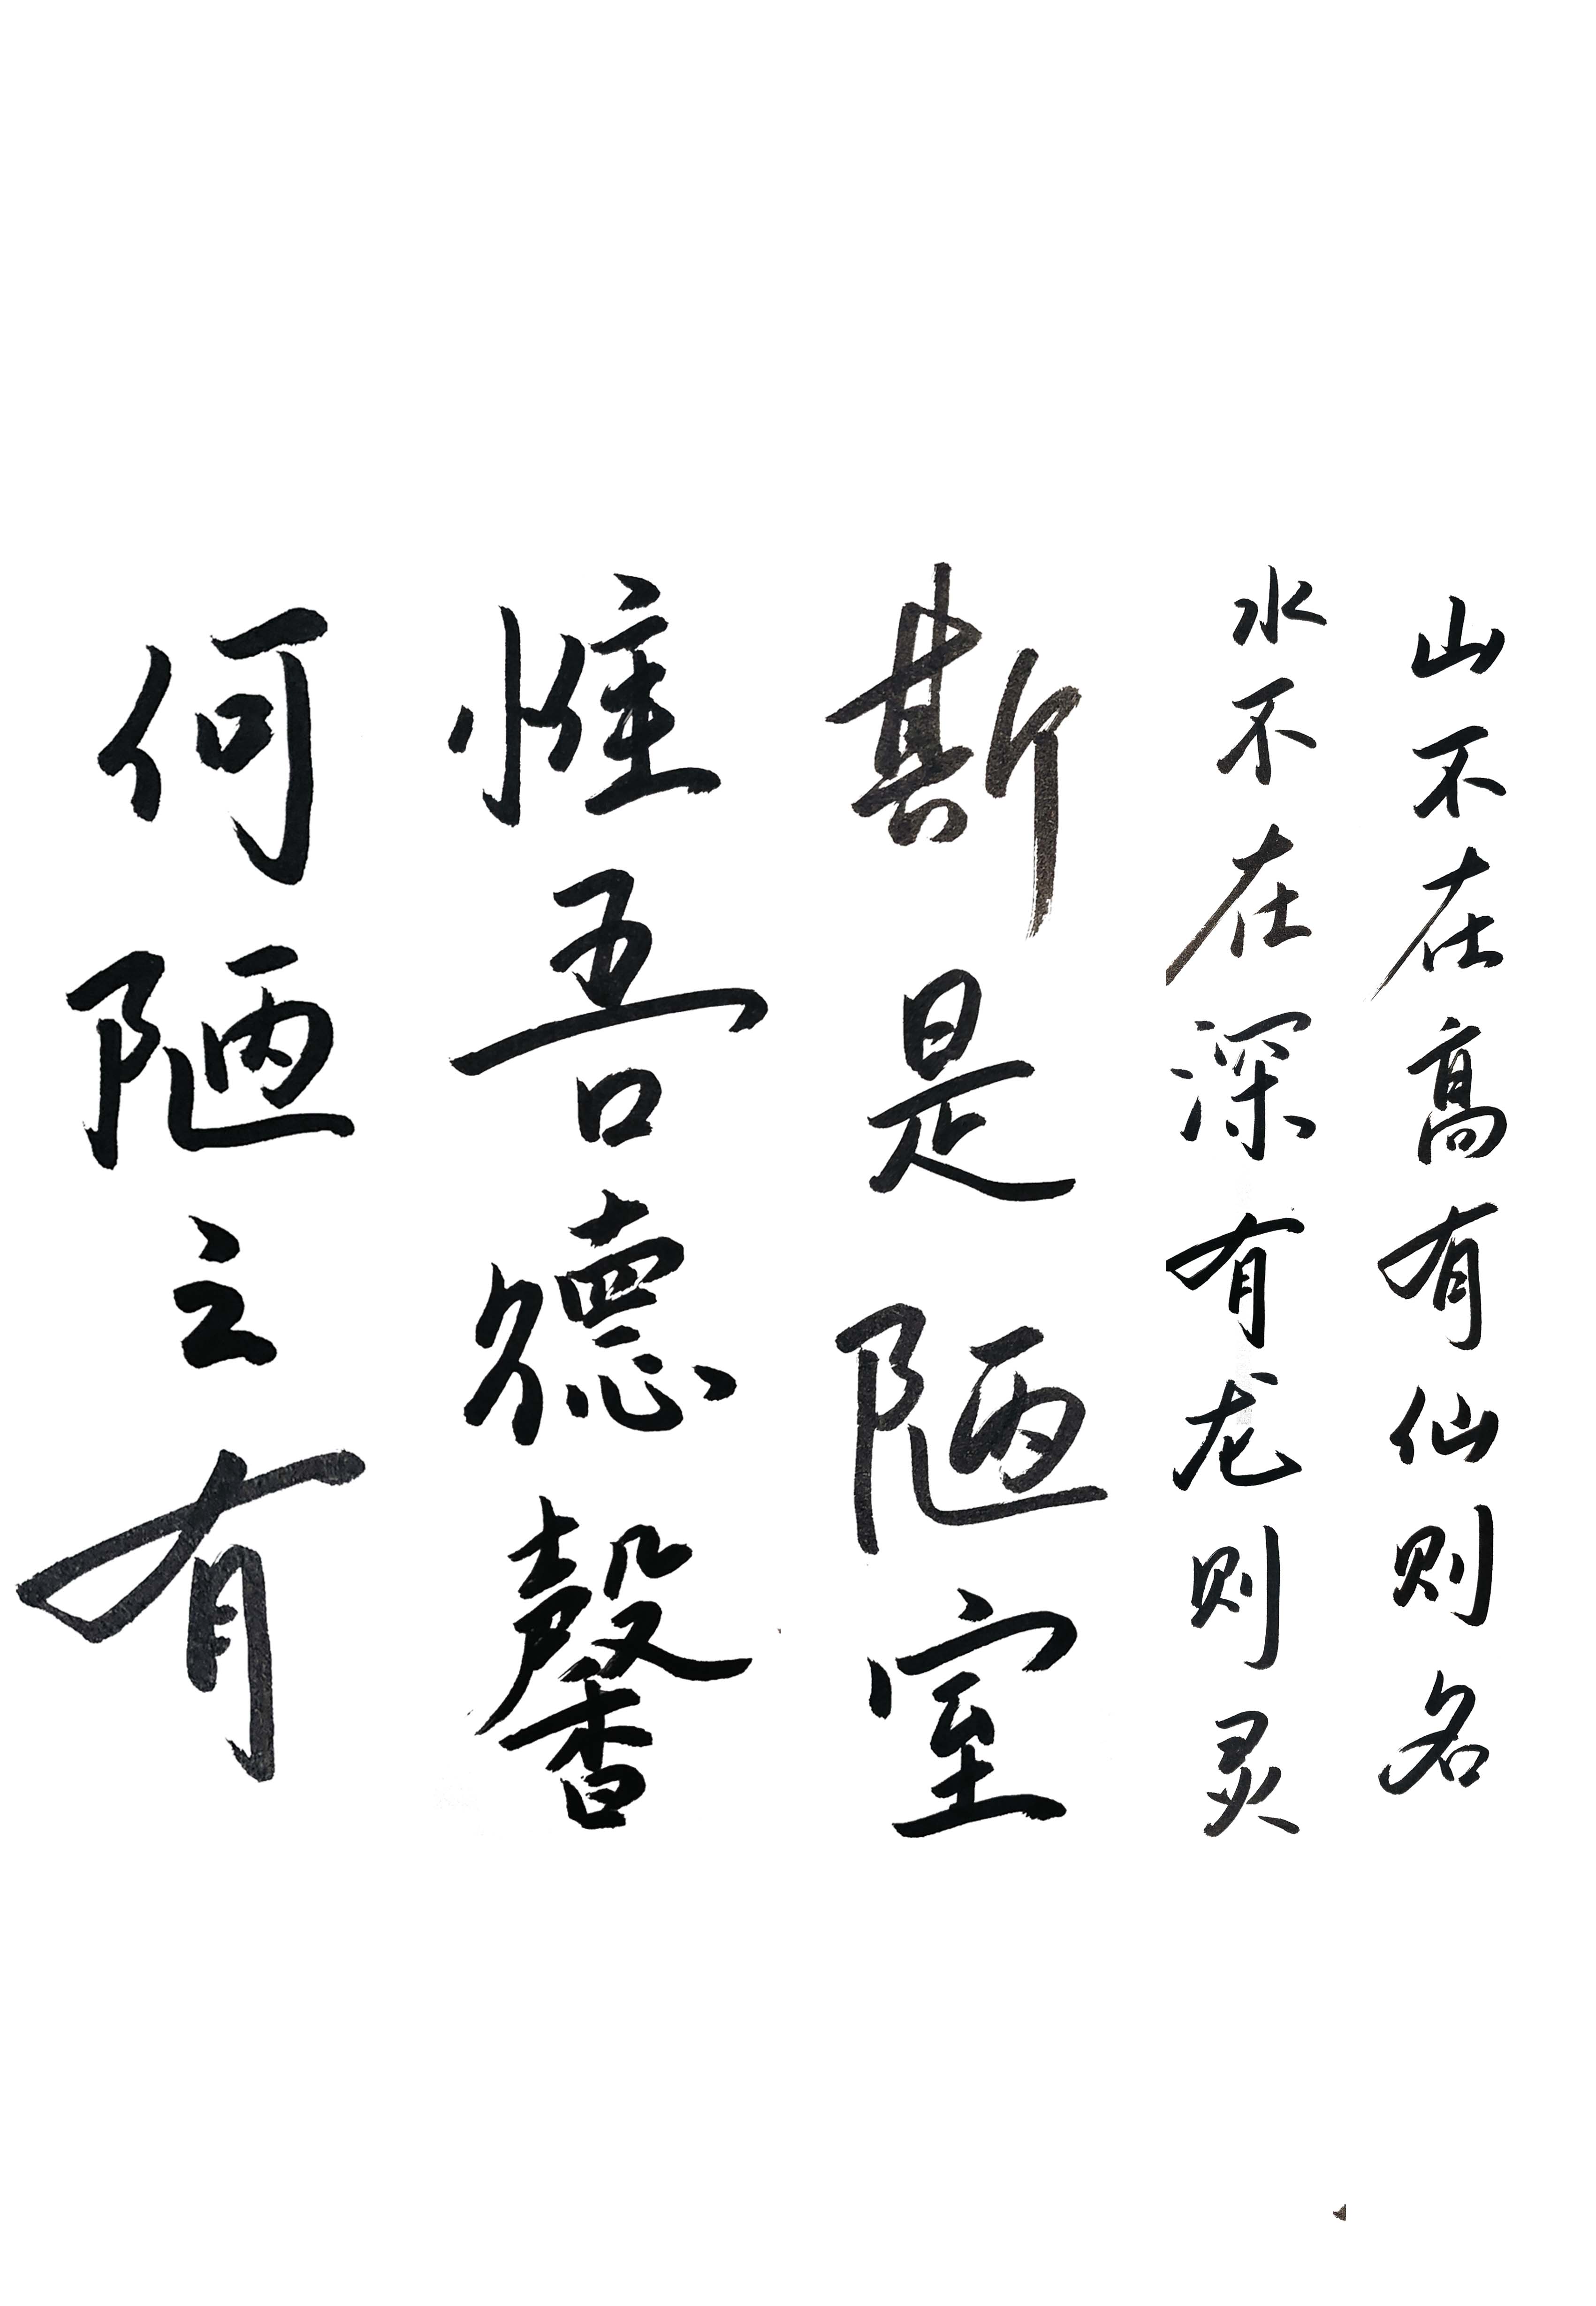 山不在高有仙则名
水不在深有龙则灵
斯是陋室
惟吾德馨
何陋之有